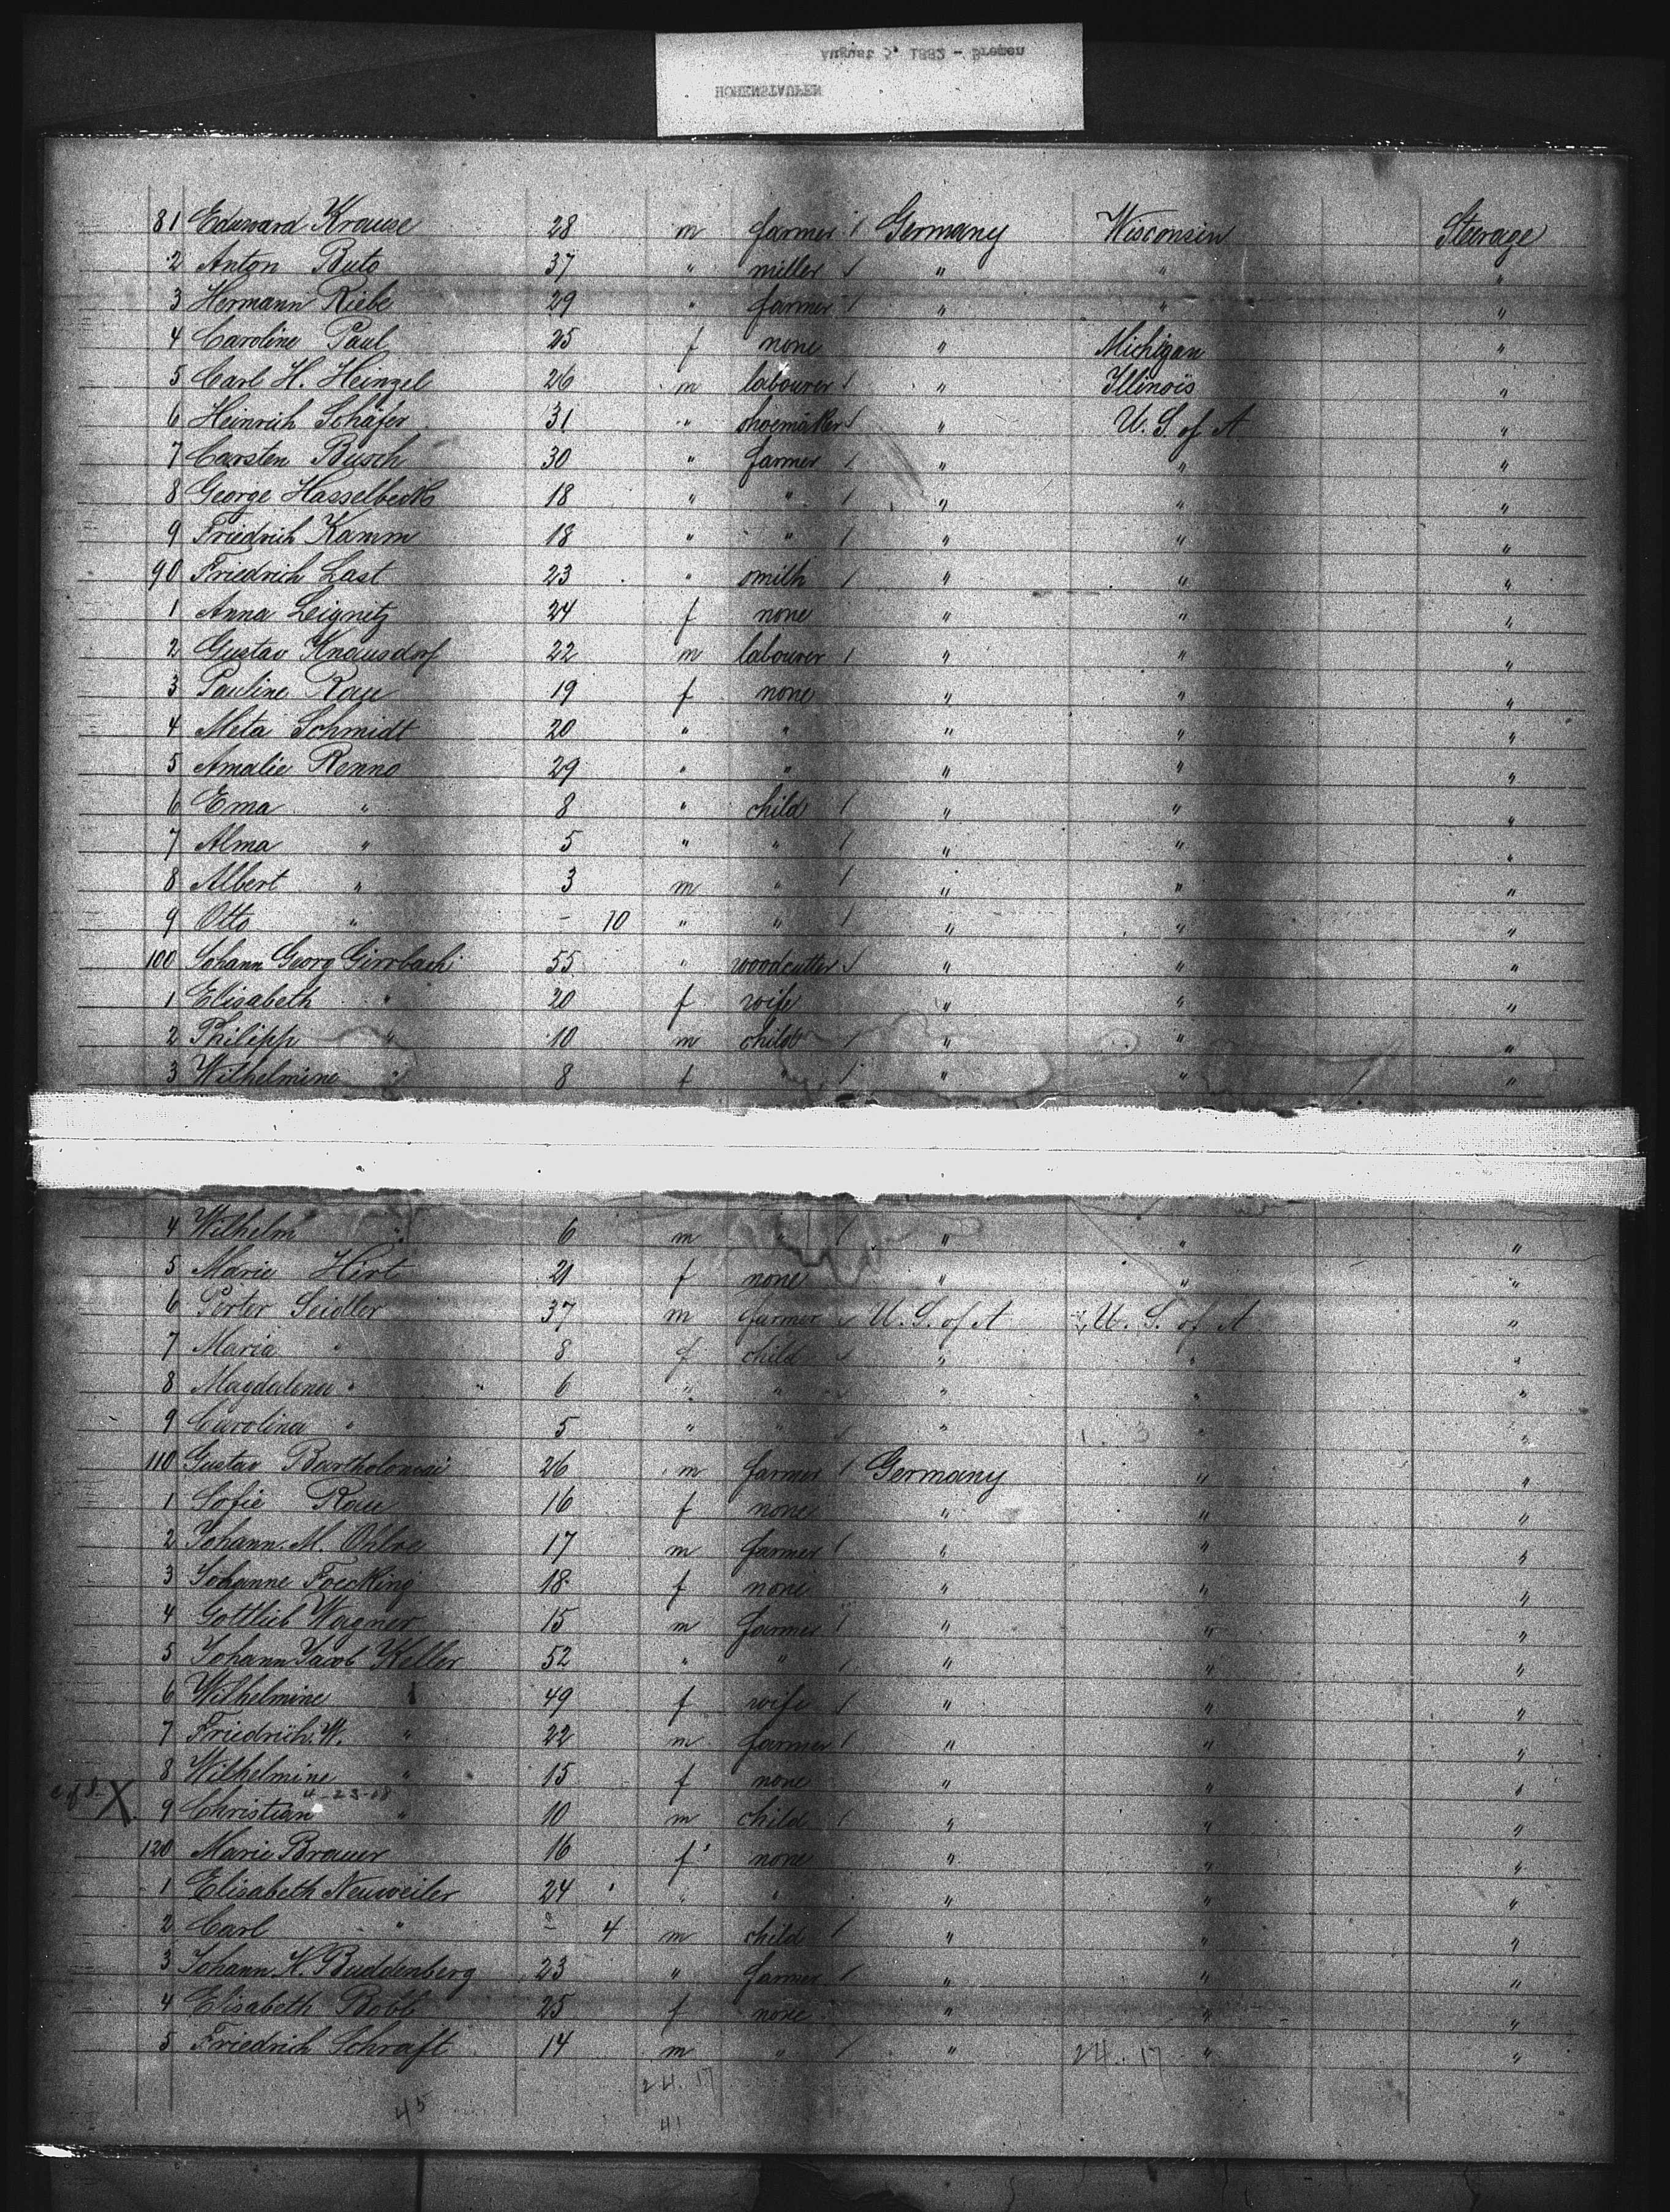 August 5, 1882 - Bremen
HOHENSTAUFEN
81 Eduward Krause 28 m farmer / Germany Wisconsin Steerage
2 Anton Buto 37 " miller / " " "
3 Hermann Riebe 29 " farmer / " " "
4 Caroline Paul 25 f none " Michigan "
5 Carl H. Heinzel 26 m labourer / " Illinois "
6 Heinrich Schäfer 31 " shoemaker / " U. S. of A "
7 Carsten Busch 30 " farmer / " " "
8 George Hasselbeck 18 " " / " " "
9 Friedrich Kamm 18 " " / " " "
90 Friedrich Last 23 " smith / " " "
1 Anna Leignitz 24 f none " " "
2 Gustav Knausdorf 22 m labourer / " " "
3 Pauline Rau 19 f none " " "
4 Meta Schmidt 20 " " " " "
5 Amalie Renno 29 " " " " "
6 Ema " 8 " child / " " "
7 Alma " 5 " " / " " "
8 Albert " 3 m " / " " "
9 Otto " - 10 " " / " " "
100 Johann Georg Girrbach 55 " woodcutter / " " "
1 Elisabeth " 20 f wife " " "
2 Philipp " 10 m child / " " "
3 Wilhelmine " 8 f " / " " "
4 Wilhelm " 6 m " / " " "
5 Marie Hirt 21 f none " " "
6 Perter Seidler 37 m farmer / U. S. of A U. S. of A "
7 Maria " 8 f child / " " "
8 Magdalena " 6 " " / " " "
9 Carolina " 5 " " / " " "
110 Gustav Bartholomai 26 m farmer / Germany " "
1 Sofie Rau 16 f none " " "
2 Johann M. 17 m farmer / " " "
3 Johanne Foecking 18 f none " " "
4 Gottlieb Wagner 15 m farmer / " " "
5 Johann Jacob Keller 52 " " / " " "
6 Wilhelmine " 49 f wife / " " "
7 Friedrich W. " 22 m farmer / " " "
8 Wilhelmine " 15 f none " " "
4-23-08
X 9 Christian " 10 m child / " " "
120 Marie Brauer 16 f none " " "
1 Elisabeth Neuweiler 24 " " " " "
2 Carl " - 4 m child / " " "
3 Johann H. Buddenberg 23 " farmer / " " "
4 Elisabeth Bobb 25 f none " " "
5 Friedrich Schraft 14 m " / " " "
24. 17
24. 17
45
41